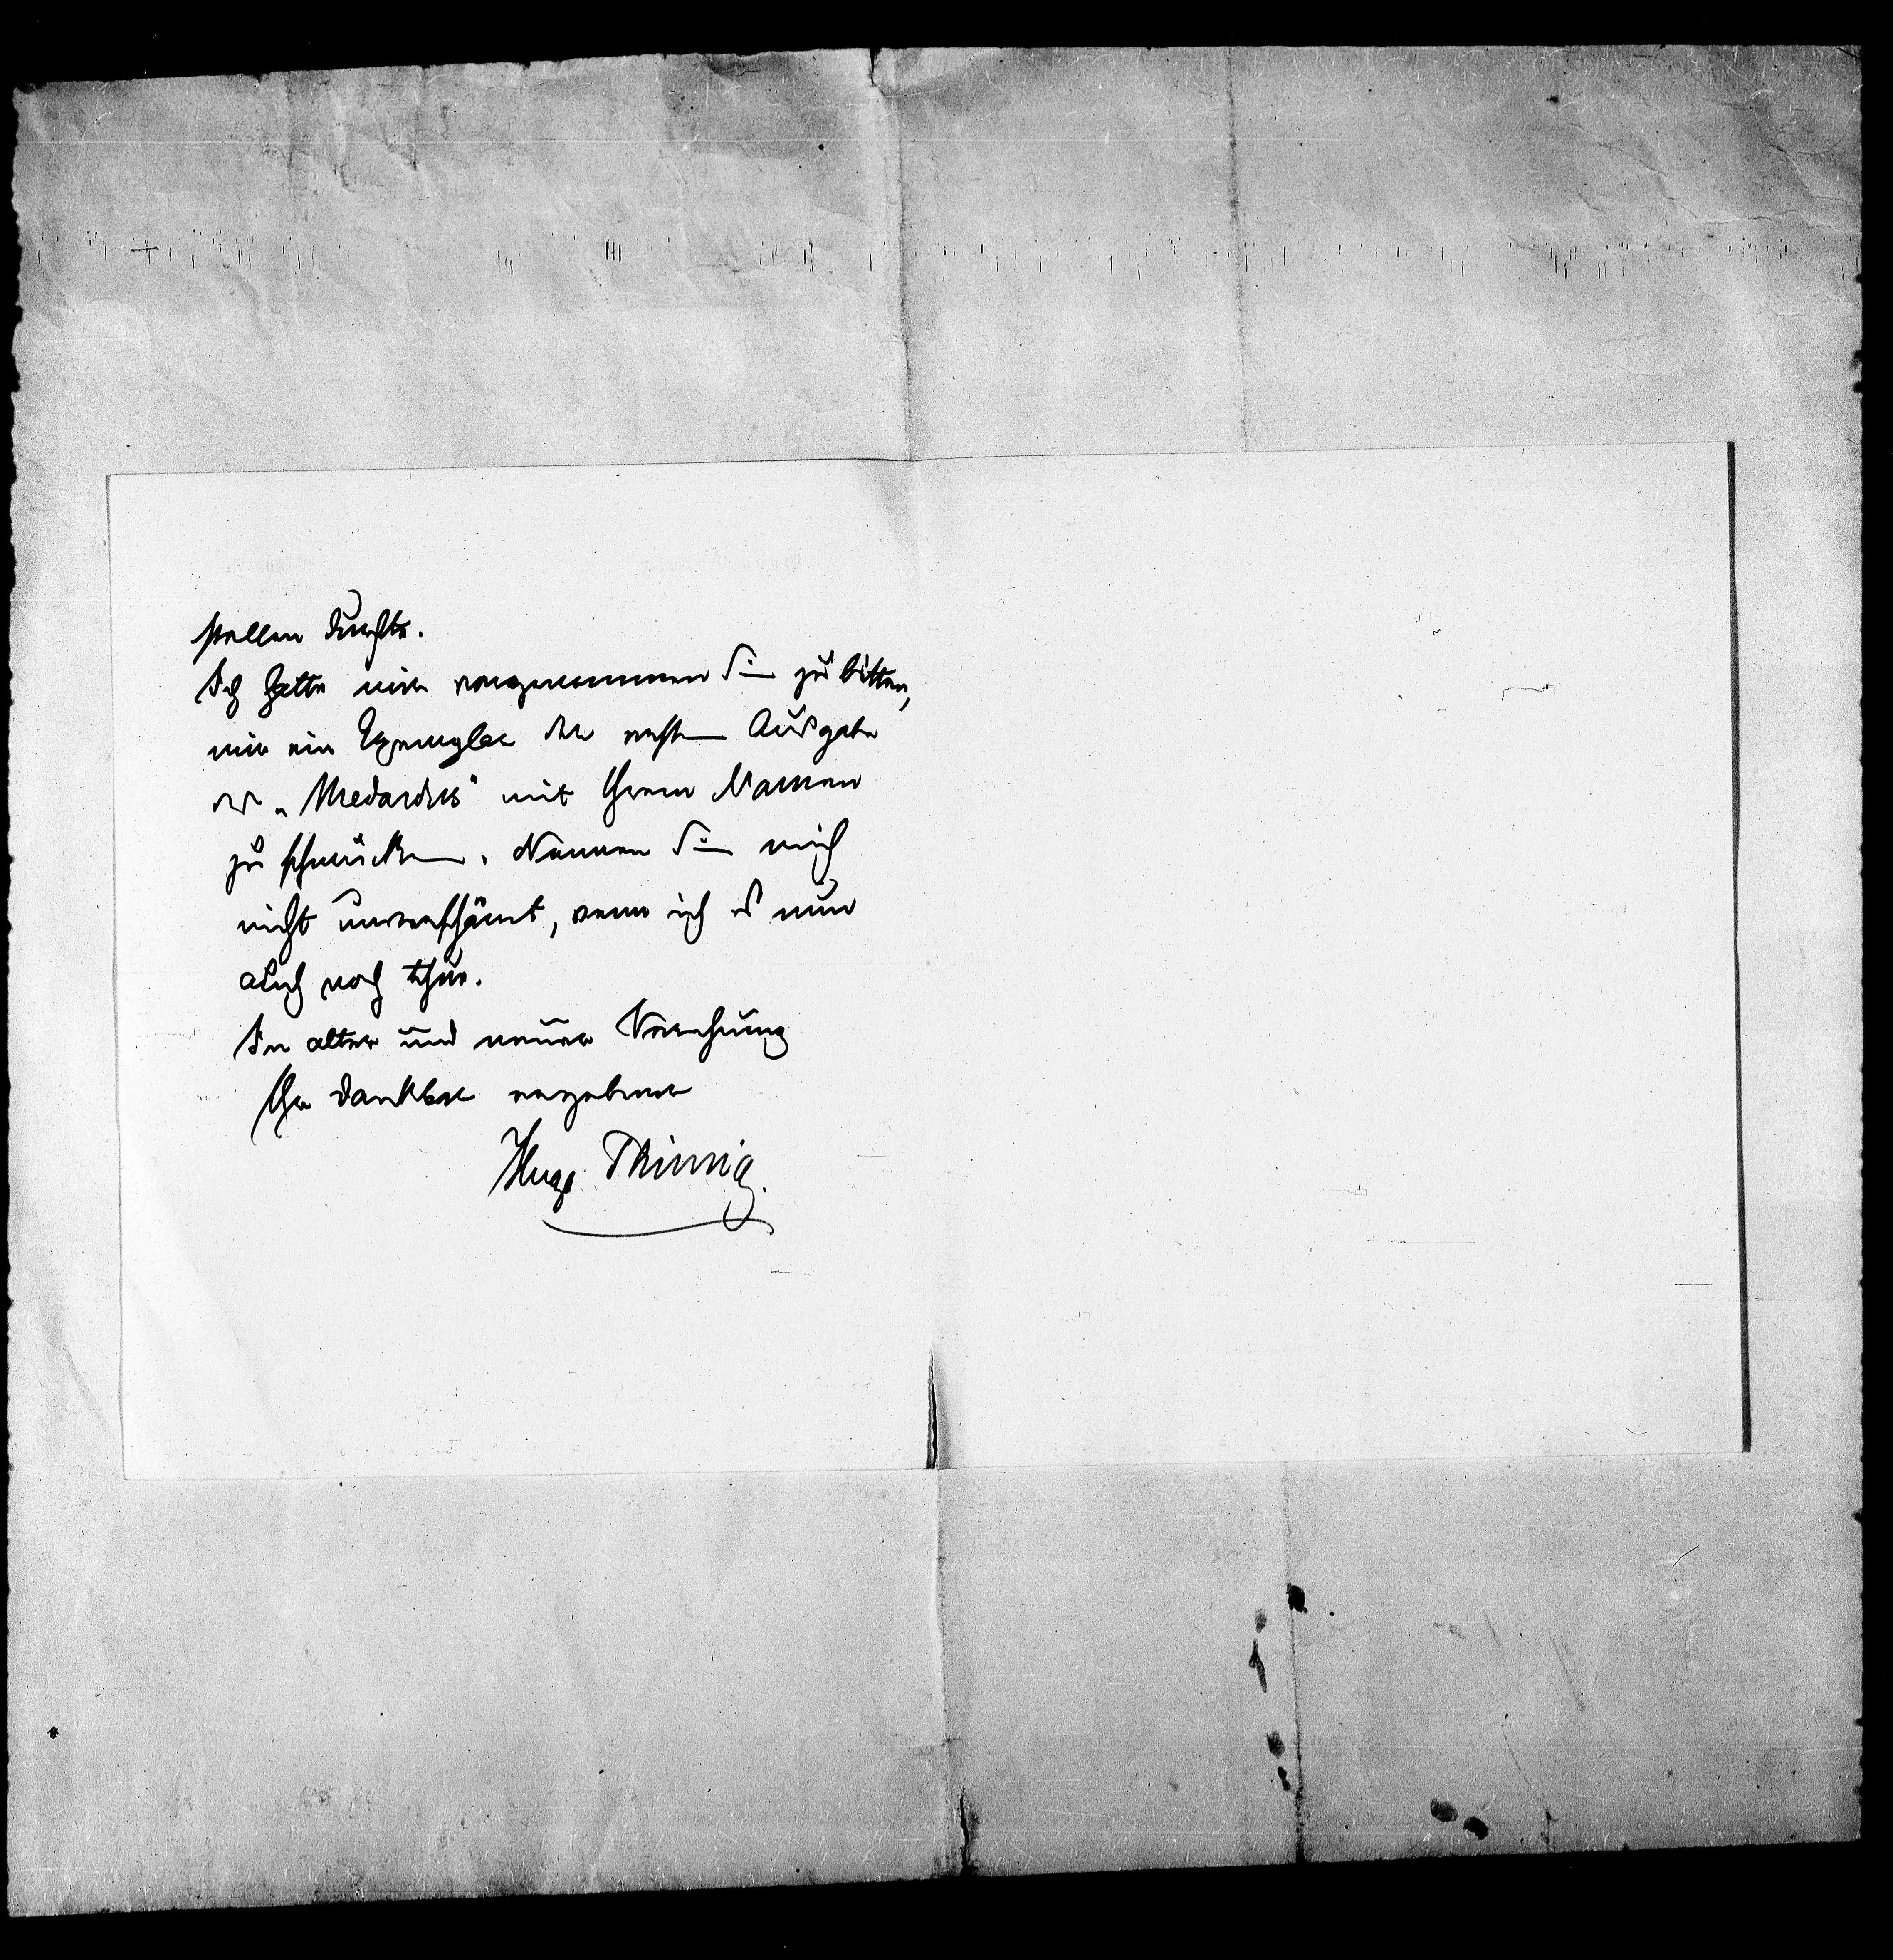 stellen durfte.
Ich hatte mir vorgenommen Sie zu bitten,
mir ein Exemplar der ersten Ausgabe
des „Medardus" mit Ihrem Namen
zu schmücken. Nennen Sie mich
nicht unverschämt, wenn ich es nun
auch noch thue.
In alter und neuer Verehrung
Ihr dankbar ergebener
Hugo Thimig.